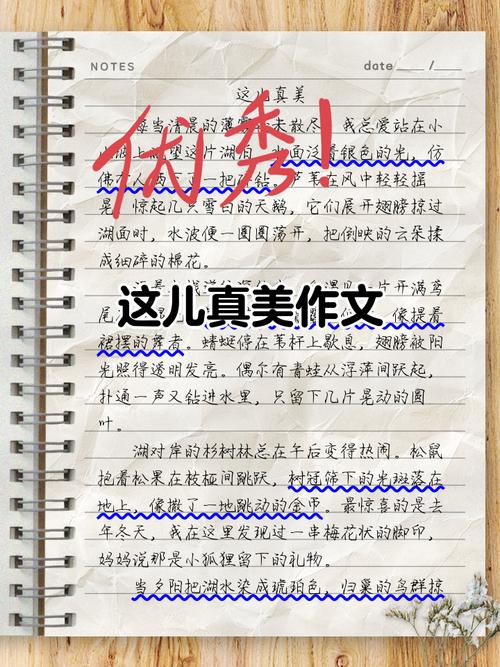 NOTES
date ____ / __
这儿真美
每当清晨的薄雾 未散尽 我总爱站在小
望这片湖泊 面泛着银色的光，仿
佛 人 了一把 钻。芦苇在风中轻轻摇
晃 惊起几只雪白的天鹅，它们展开翅膀掠过
湖面时，水波便一圈圈荡开，把倒映的云朵揉
成细碎的棉花。
片开满鸢
尾 像提着
裙摆的舞者。蜻蜓停在苇杆上歇息，翅膀被阳
光照得透明发亮。偶尔有青蛙从浮萍间跃起，
扑通一声又钻进水里，只留下几片晃动的圆
叶。
湖对岸的杉树林总在午后变得热闹。松鼠
抱着松果在枝桠间跳跃，树冠筛下的光斑落在
地上，像撒了一地跳动的金币。最惊喜的是去
年冬天，我在这里发现过一串梅花状的脚印，
妈妈说那是小狐狸留下的礼物。
当夕阳把湖水染成琥珀色，归巢的鸟群掠
优秀！
这儿真美作文